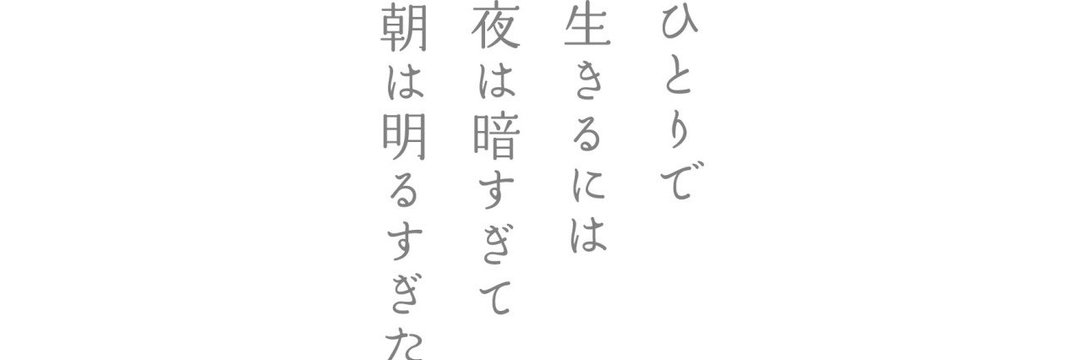 ひとりで
生きるには
夜は暗すぎて
朝は明るすぎた